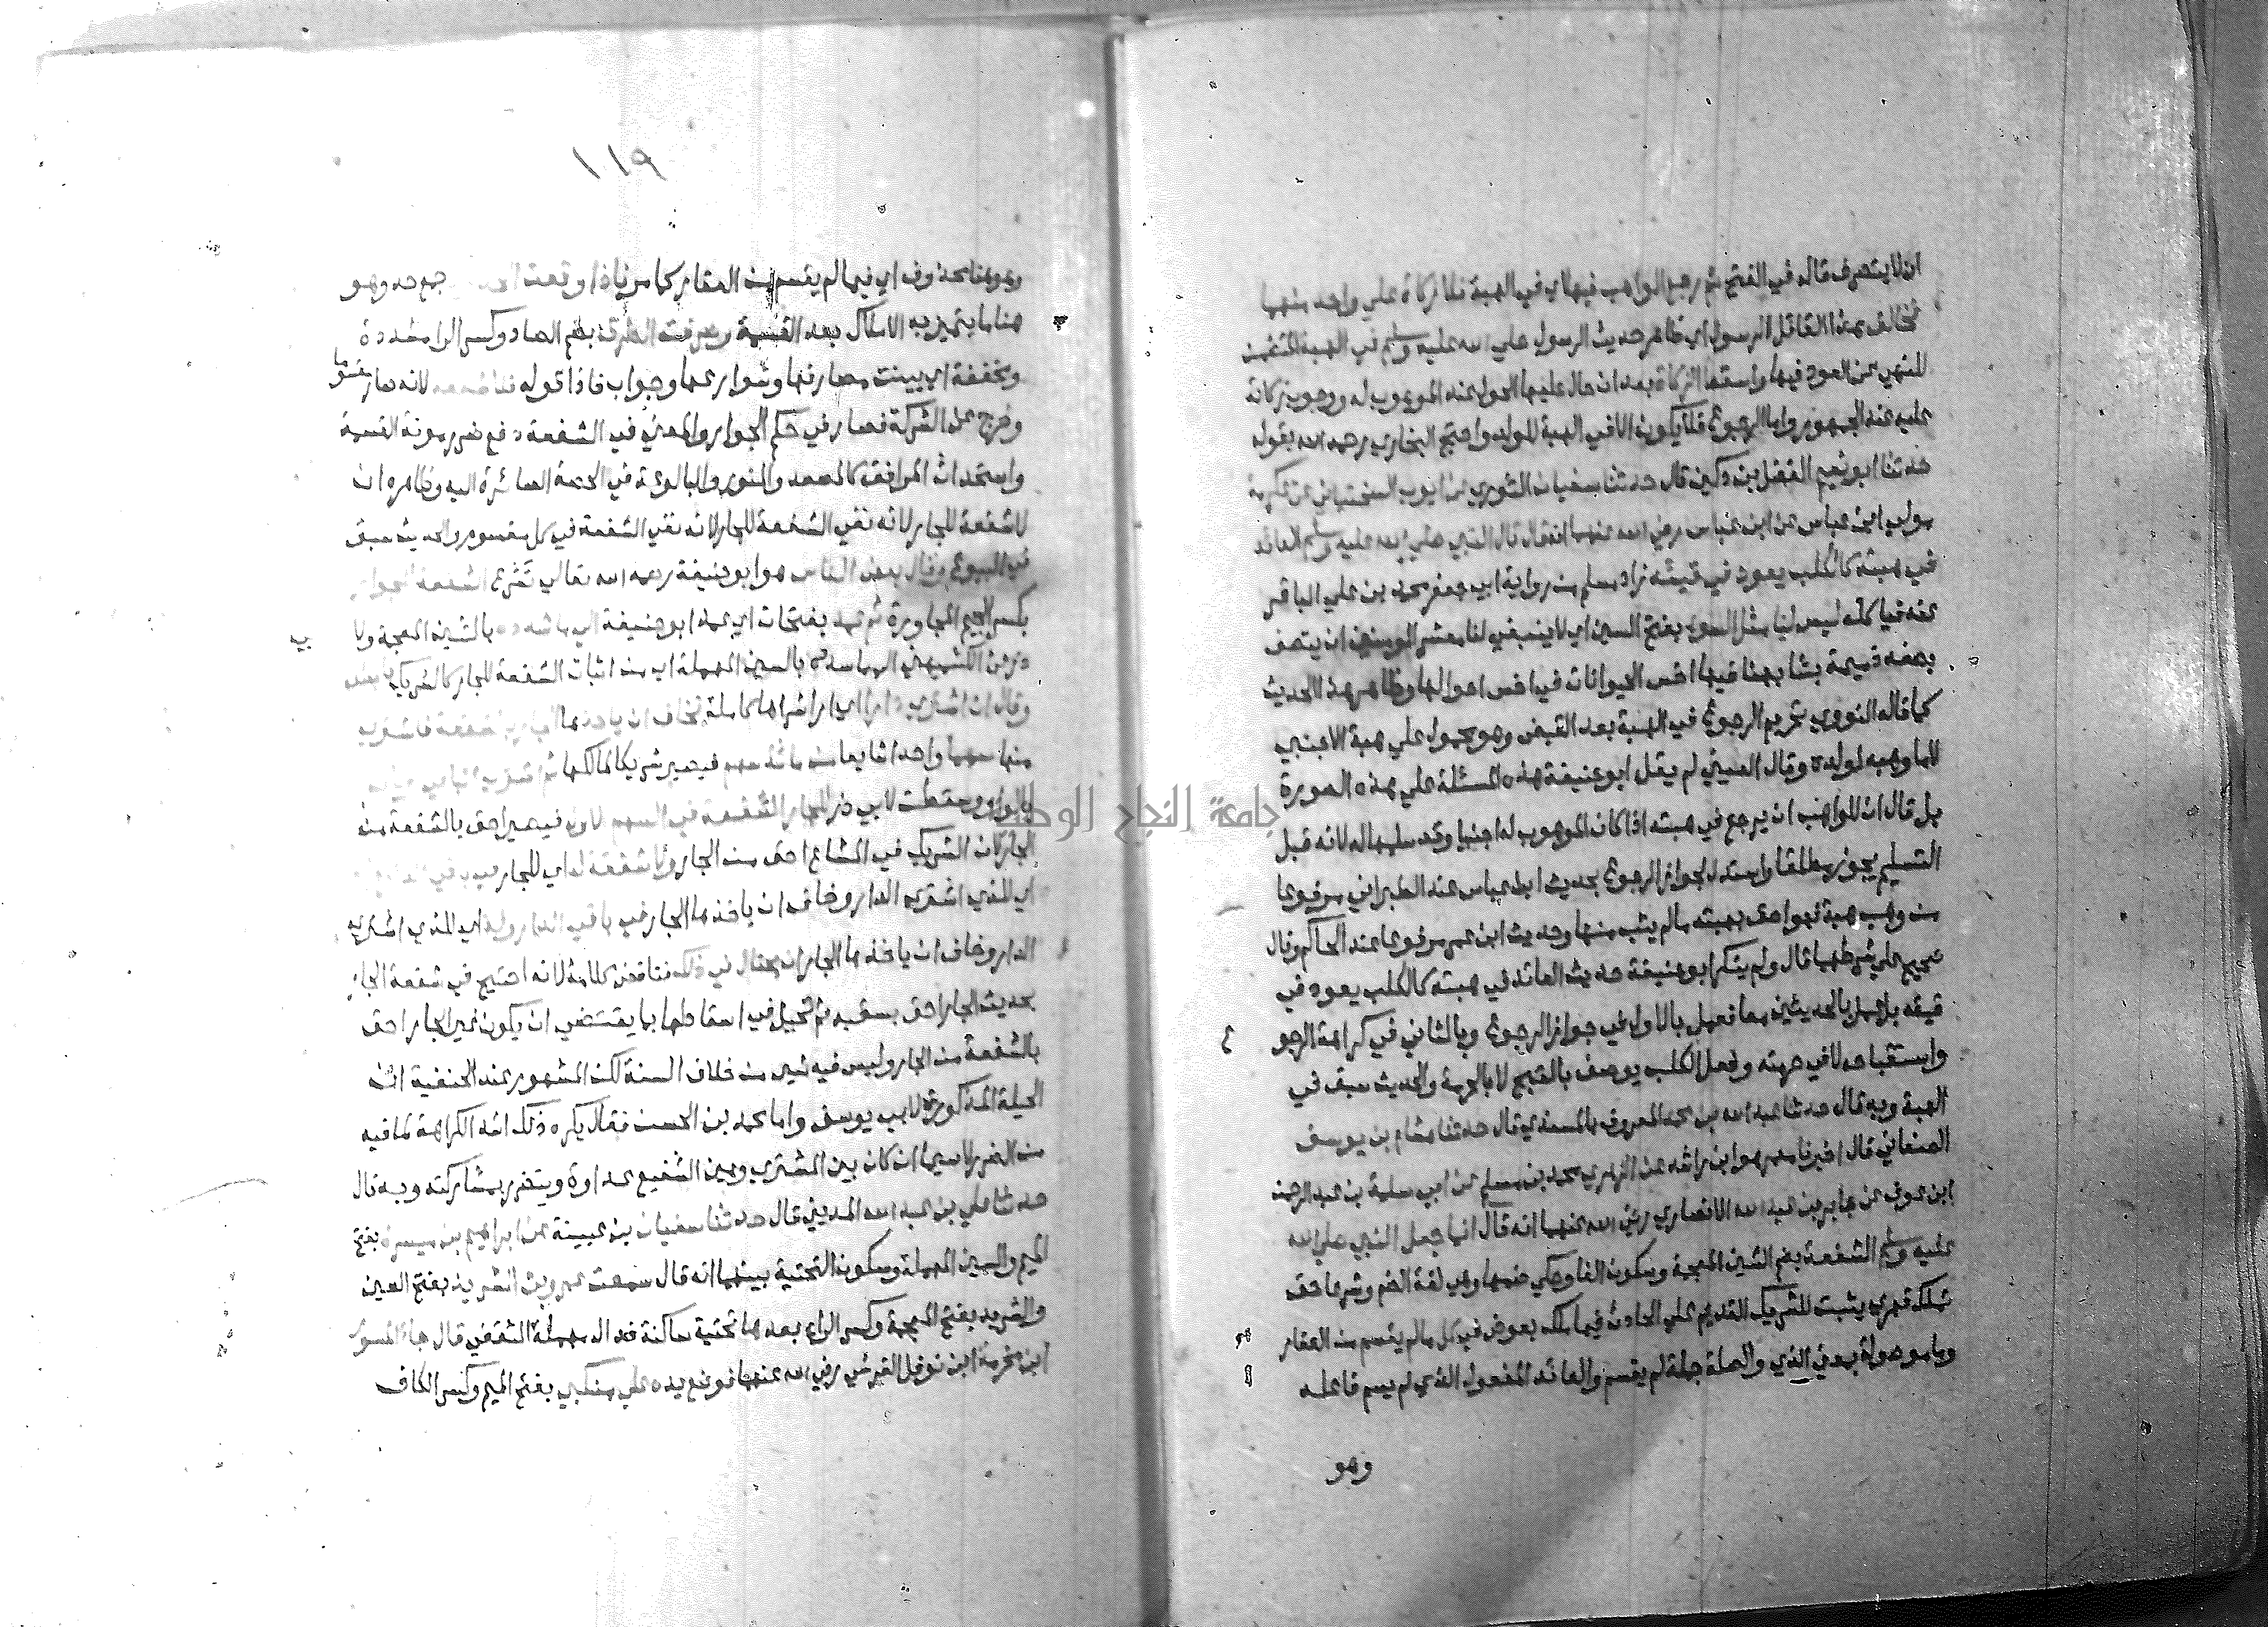 ان لا يتصرف قاله في الفتح ثم رجع الواهب فيها اي في الهبة فلا زكاة علي واحد منهما
فخالف هذا القائل الرسول اي ظاهر حديث الرسول صلي الله عليه وسلم في الهبة المتضمن
للنهي عن العود فيها واسقط الزكاة بعد ان حال عليها الحول عند الموهوب له ووجوب زكاته
عليه عند الجمهور واما الرجوع فلا يكون الا في الهبة للولد واحتج البخاري رحمه الله بقوله
حدثنا ابو نعيم الفضل بن دكين قال حدثنا سفيان الثوري عن ايوب السختياني عن عكرمة
مولي ابن عباس عن ابن عباس رضي الله عنهما انه قال قال النبي صلي الله عليه وسلم العائد
في هبته كالكلب يعود في قيئه زاد مسلم من رواية ابي جعفر محمد بن علي الباقر
عنه فياكله ليس لنا مثل السوء بفتح السين اي لا ينبغي لنا معشر المومنين ان يتصف
بصفة ذميمة يشابهنا فيها اخس الحيوانات في اخس احوالها وظاهر هذا الحديث
كما قاله النووي تحريم الرجوع في الهبة بعد القبض وهو محمول علي هبة الاجنبي
لا ما وهبه لولده وقال العيني لم يقل ابو حنيفة هذه المسئلة علي هذه الصورة
بل قال ان للواهب ان يرجع في هبته اذا كان الموهوب له اجنبيا وقد سلمها له لانه قبل
التسليم يجوز مطلقا واستدل لجواز الرجوع بحديث ابن عباس عند الطبراني مرفوعا
من وهب هبة فهو احق بهبته ما لم يثب منها وحديث ابن عمر مرفوعا عند الحاكم وقال
صحيح علي شرطهما قال ولم ينكر ابو حنيفة حديث العائد في هبته كالكلب يعود في
قيئه بل عمل بالحديثين معا فعمل بالاول في جواز الرجوع وبالثاني في كراهة الرجو ع
واستقباحه لا في حرمته وفعل الكلب يوصف بالقبح لا بالحرمة والحديث سبق في
الهبة وبه قال حدثنا عبد الله بن محمد المعروف بالمسندي قال حدثنا هشام بن يوسف
الصنعاني قال اخبرنا معمر هو ابن راشد عن الزهري محمد بن مسلم عن ابي سلمة بن عبد الرحمن
ابن عوف عن جابر بن عبد الله الانصاري رضي الله عنهما انه قال انما جعل النبي صلي الله
عليه وسلم الشفعة بضم الشين المعجمة وسكون الفا وحكي ضمها وهي لغة الضم وشرعا حق
تملك قهري يثبت للشريك القديم علي الحادث فيما ملك بعوض في كل ما لم يقسم من العقار
وما موصولة بمعني الذي والصلة جملة لم يقسم والعائد المفعول الذي لم يسم فاعله
وهو
١١٩
وهو هنا محذوف اي فيما لم يقسم من العقار كما مر فاذا وقعت جمع حد وهو
هنا ما يتميز به الاملاك بعد القسمة وصرفت الطرق بضم الصاد وكسر الرا مشددة
ومخففة اي بينت مصارفها وشوارعها وجواب فاذا قوله فلا شفعة لانه صار مقسوما
وخرج عن الشركة فصار في حكم الجوار والمعني في الشفعة دفع ضرر مونة القسمة
واستحداث المرافق كالمصعد والمنور والبالوعة في الحصة الصائرة اليه وظاهره ان
لا شفعة للجار لانه نفي الشفعة للجار لانه نفي الشفعة في كل مقسوم والحديث سبق
في البيوع وقال بعض الناس هو ابو حنيفة رحمه الله تعالي تشرع الشفعة للجوار
بكسر الجيم المجاورة ثم عمد بفتحات اي عمد ابو حنيفة الي ما شدده بالشين المعجمة ولا بي
ذر عن الكشميهني الي ما سدده بالسين المهملة اي من اثبات الشفعة للجار كالشريك
وقال ان اشتري دارا اي اراد شراها كاملة فخاف ان ياخذها الجار بالشفعة فاشتري
منها سهما واحدا شايعا من مائة سهم فيصير شريكا لمالكها ثم اشتري الباقي
بالواو وسقطت لابي ذر للجار الشفعة في السهم الاول فيصير احق بالشفعة من
الجار لان الشريك في المشاع احق من الجار ولا شفعة له اي للجار في باقي الدار
اي للذي اشتري الدار وخاف ان ياخذها الجار في باقي الدار وله اي للذي اشتري
الدار وخاف ان ياخذها الجار ان يحتال في ذلك فناقض كلامه لانه احتج في شفعة الجار
بحديث الجار احق بسقبه ثم تحيل في اسقاطها بما يقتضي ان يكون غير الجار احق
بالشفعة من الجار وليس فيه شي من خلاف السنة لكن المشهور عند الحنفية ان
الحيلة المذكورة لابي يوسف واما محمد بن الحسن فقال يكره ذلك اشد الكراهة لما فيه
من الضرر لاسيما ان كان بين المشتري وبين الشفيع عداوة ويتضرر بمشاركته وبه قال
حدثنا علي بن عبد الله المديني قال حدثنا سفيان بن عيينة عن ابراهيم بن ميسرة بفتح
الميم والسين المهملة وسكون التحتية بينهما انه قال سمعت عمرو بن الشريد بفتح العين
والشريد بفتح المعجمة وكسر الراء بعدها تحتية ساكنة فدال مهملة الثقفي قال جاء المسور
ابن مخرمة ابن نوفل القرشي رضي الله عنهما فوضع يده علي منكبي بفتح الميم وكسر الكاف
جامعة النجاح الوطنية